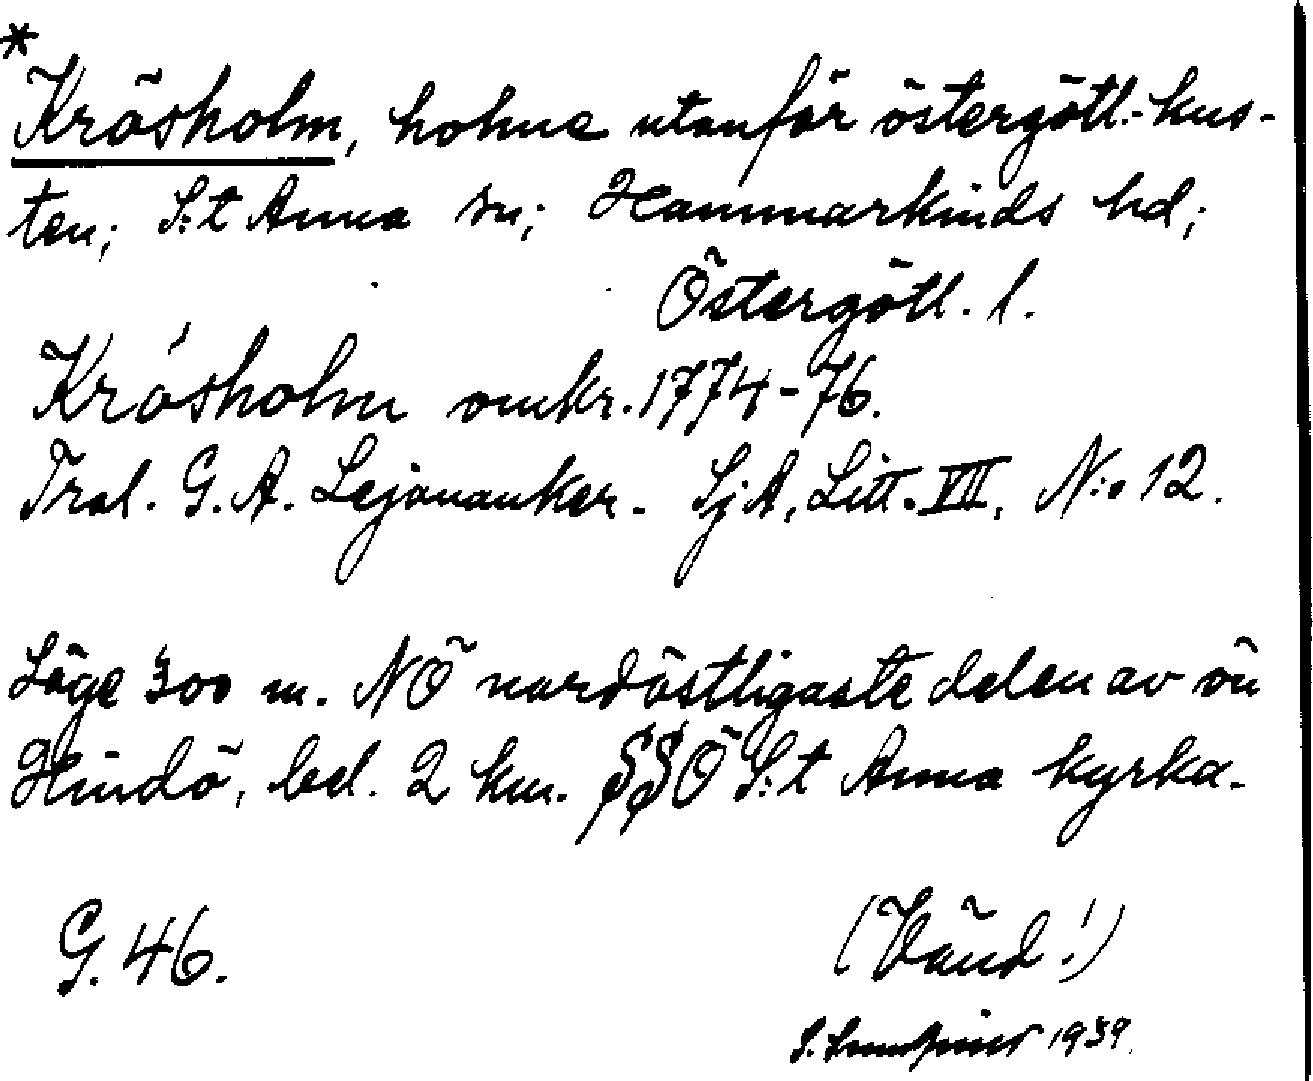 *
Krösholm, holme utanför östergötl. kus-
ten; S:t Anna sn; Hammarkinds hd;
Östergötl. l.
Krösholm omkr. 1774-76.
Tral. G. A. Lejonanker. Sj A, Litt. VII, N:o 12.
Läge 300 m. NÖ nordöstligaste delen av ön
Hindö, bel. 2 km. SSÖ S:t Anna kyrka.
G. 46.
(Vänd!)
S. 1939.